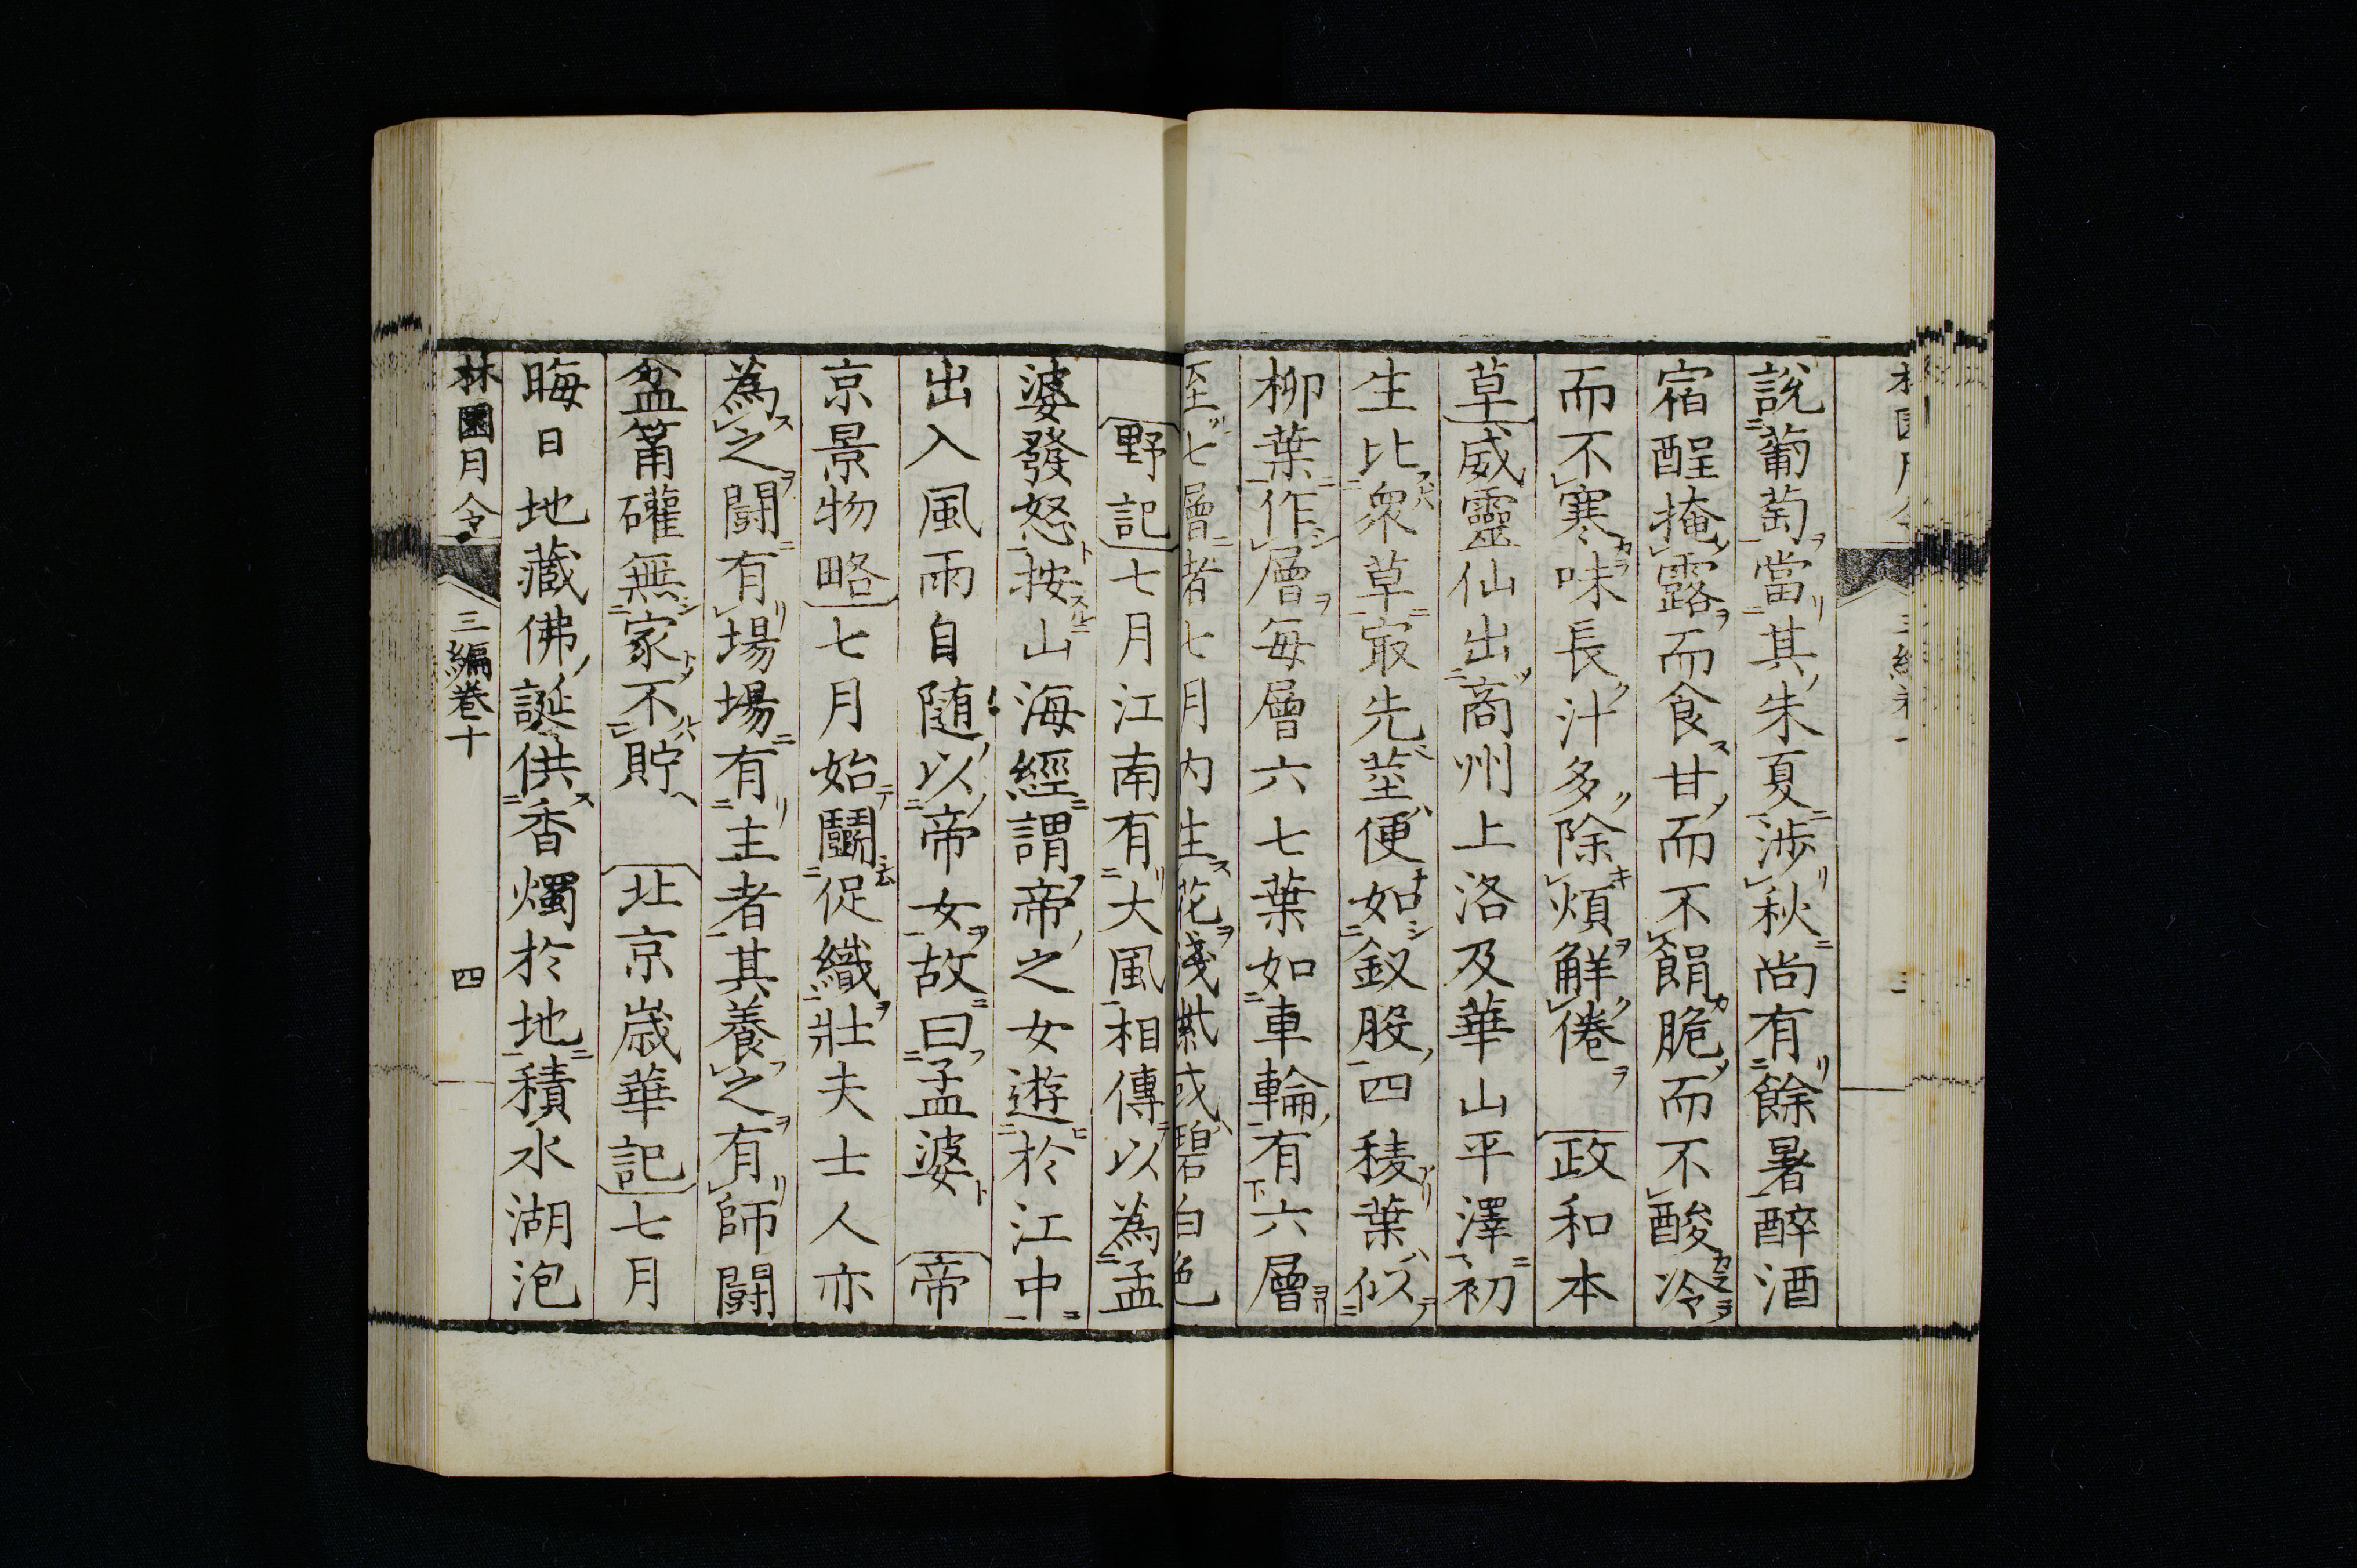 說葡萄當其朱夏涉秋尚有餘暑醉酒
宿酲掩露而食甘而不䬼脆而不酸冷
而不寒味長汁多除煩觧倦　政和本
草威靈仙出商州上洛及華山平澤初
生比衆草㝡先莖便如釵股四稜葉似
柳葉作層每層六七葉如車輪有六層
至七層者七月内生花淺紫或碧白色
野記七月江南有大風相傳以為孟
婆發怒按山海經謂帝之女遊於江中
出入風雨自随以帝女故曰孟婆　帝
京景物略七月始鬭促織壯夫士人亦
為之闘有場場有主者其養之有師闘
盆筩礶無家不貯　北京歳華記七月
晦日地藏佛誕供香燭於地積水湖泡
林園月令　三編巻十　四